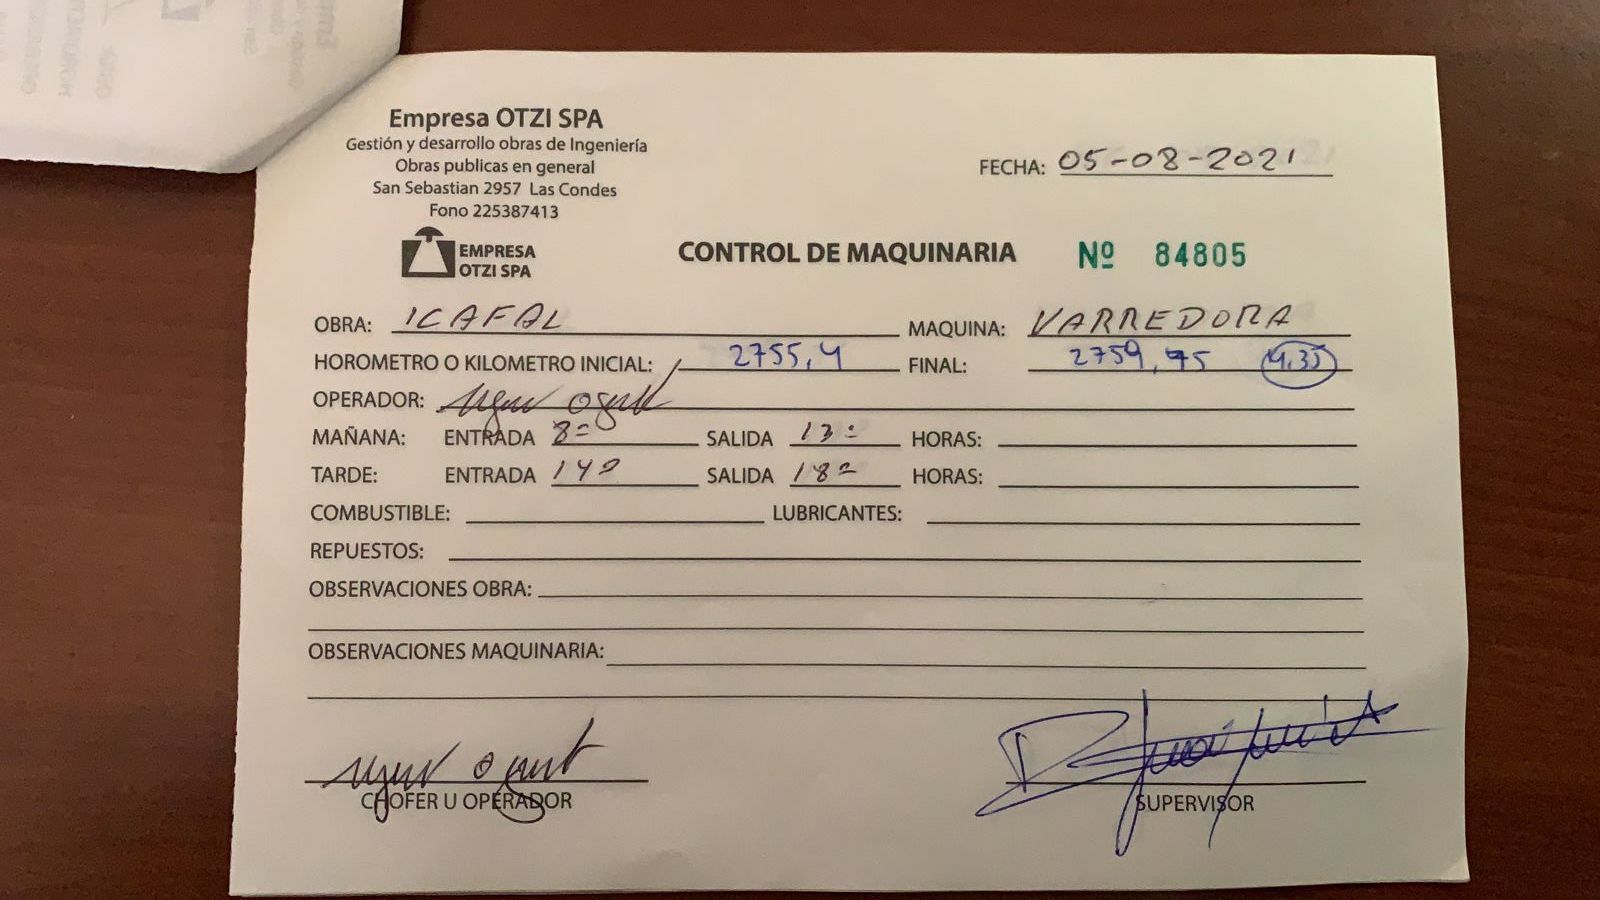 Empresa OTZI SPA
Gestión y desarrollo obras de Ingeniería
Obras publicas en general
San Sebastian 2957 Las Condes
Fono 225387413
EMPRESA
OTZI SPA
FECHA: 05-08-2021
CONTROL DE MAQUINARIA Nº 84805
OBRA: ICAFAL MAQUINA: VARREDORA
HOROMETRO O KILOMETRO INICIAL: 2755,4 FINAL: 2759,75 4.35
OPERADOR:
MAÑANA: ENTRADA 8= SALIDA 13= HORAS:
TARDE: ENTRADA 14= SALIDA 18= HORAS:
COMBUSTIBLE: LUBRICANTES:
REPUESTOS:
OBSERVACIONES OBRA:
OBSERVACIONES MAQUINARIA:
CHOFER U OPERADOR SUPERVISOR